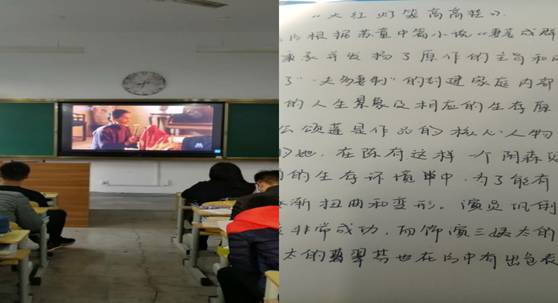 《大红灯笼高高挂》.
根据苏童中篇小说《妻妾成群
承并发扬了原作的主旨和
了"一夫多妻制"的封建家庭内部
的人生景象及相应的生存原
颂莲是作品的核心人物
她，在陈府这样一个阴森
的生存环境中，为了能有
渐扭曲和变形。演员巩俐
非常成功，而饰演三姨太的
太的翡翠等也在片中有出色表